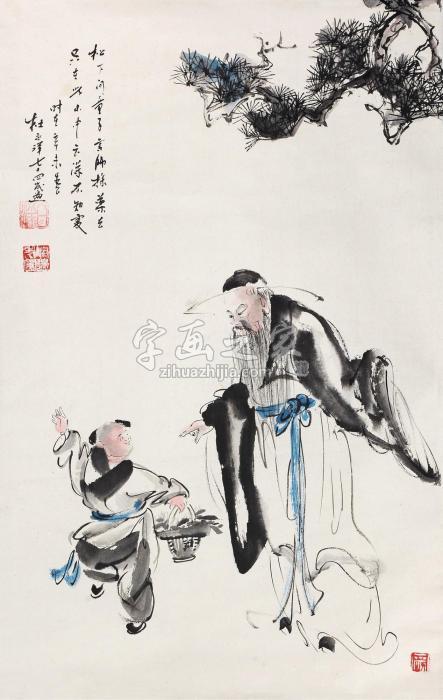 松下问童子言師採藥去
只在此山中云深不知處
时在辛未春
杜
七十四歲画
字画之家
zihuazhijia.com